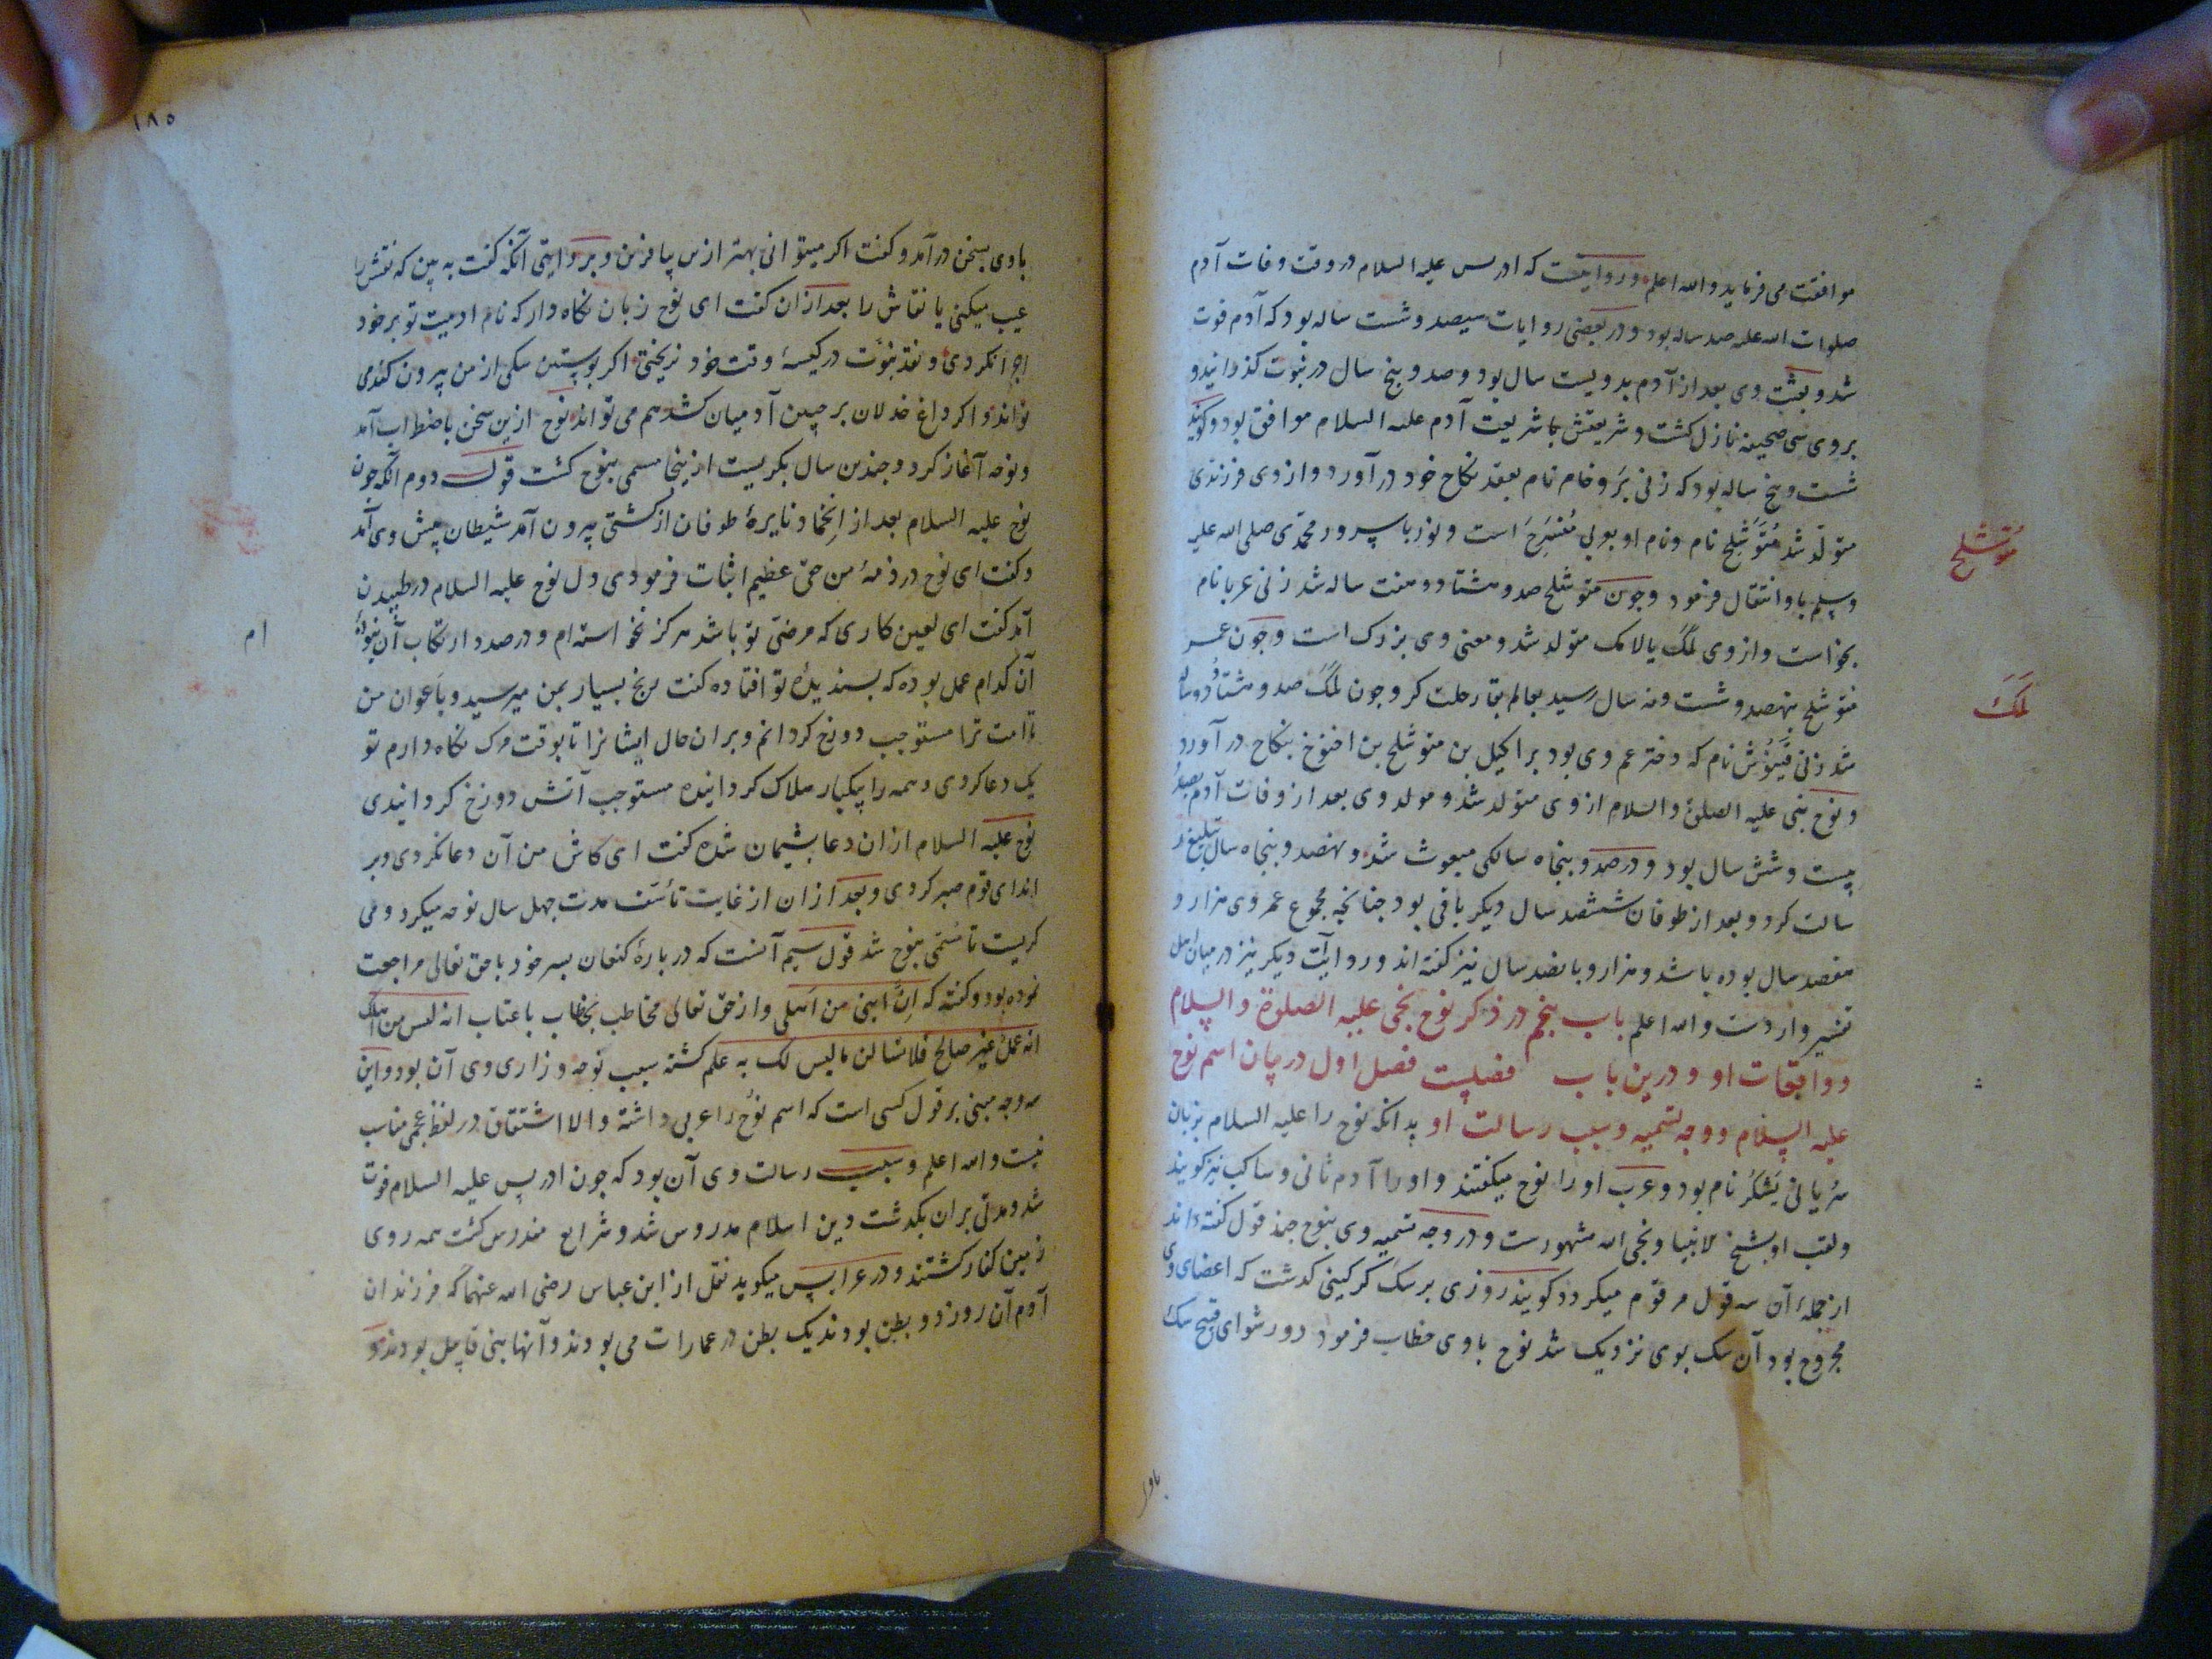 موافقت می فرماید والله اعلم و روایتست که ادریس علیه السلام در وقت وفات آدم
صلوات الله علیه صد ساله بود و در بعضی روایات سیصد و شست ساله بود که آدم فوت
شد و بعثت وی بعد از آدم بدویست سال بود و صد و پنج سال در نبوت کذرانید و
بروی سی صحیفه نازل کشت و شریعتش با شریعت آدم علیه السلام موافق بود و کویند
شست و پنج ساله بود که زنی بَروخام نام بعقد نکاح خود در آورد و از وی فرزندی
متولد شد مُتَوَشْلِخ نام و نام او بعربی است و نور با سرور محمدی صلی الله علیه
مُتوشلخ
وسلم باو انتقال فرمود و چون متوشلخ صد و هشتاد و هفت ساله شد زنی عربا نام
بخواست و از وی لمک یا لامک متولد شد و معنی وی بزرک است و چون عمر
متوشلخ بنهصد و شست و نه سال رسید بعالم بقا رحلت کرد و چون لمک صد و هشتاد و دو ساله
لَمَک
شد زنی نام که دختر عم وی بود براکیل بن متوشلخ بن اخنوخ بنکاح در آورد
و نوح نبی علیه الصلوة والسلام از وی متولد شد و مولد وی بعد از وفات آدم بصد و
بیست و شش سال بود و در صد و پنجاه سالکی مبعوث شد و نهصد و پنجاه سال تبلیغ ر
سالت کرد و بعد از طوفان ششصد سال دیکر باقی بود چنانچه مجموع عمر وی هزار و
هفصد سال بوده باشد و هزار و پانصد سال نیز کفته اند و روایت دیکر نیز در میان اهل
تفسیر واردست والله اعلم باب پنجم در ذکر نوح نجی علیه الصلوة والسلام
و واقعات او و درین باب فصلیست فصل اول در بیان اسم نوح
علیه السلام و وجه تسمیه و سبب رسالت او بدانکه نوح را علیه السلام بزبان
سُریانی یَشکُر نام بود و عرب او را نوح میکفتند و او را آدم ثانی و ساکب نیز کویند
ولقب او شیخ الانبیا و نجی الله مشهورست و در وجه تسمیه وی بنوح چند قول کفته اند
از جمله آن سه قول مرقوم میکردد کویند روزی بر سک کرکینی کدشت که اعضای وی
مجروح بود آن سک بوی نزدیک شد نوح باوی خطاب فرمود دور شو ای قبیح سک
باوی
١٨٥
باوی بسخن در آمد و کفت اکر میتوانی بهتر از من بیافرین و بروایتی آنکه کفت به بین که نقش را
عیب میکنی یا نقاش را بعد از ان کفت ای نوح زبان نکاه دار که نام ادمیت تو بر خود
اجرا نکردی و نقد نبوّت در کیسهٔ وقت خود نریختی اکر پوستین سکی از من بیرون کند می
تواند و اکر داغ خذلان بر جبین آدمیان کشد هم می تواند نوح ازین سخن باضطراب آمد
و نوحه آغاز کرد و چندین سال بکریست ازینجا مسمی بنوح کشت قول دوم آنکه چون
نوح علیه السلام بعد از انخماد نایرهٔ طوفان از کشتی بیرون آمد شیطان پیش وی آمد
و کفت ای نوح در ذمهٔ من حق عظیم اثبات فرمودی دل نوح علیه السلام در طپیدن
آمد کفت ای لعین کاری که مرضی تو باشد هرکز نخواسته ام و در صدد ارتکاب آن نبوده
ام
آن کدام عمل بوده که پسندیدهٔ تو افتاده کفت رنج بسیار بمن میرسید و باعوان من
تا امت ترا مستوجب دوزخ کردانم و بران حال ایشانرا تا بوقت مرک نکاه دارم تو
یک دعا کردی و همه را بیکبار هلاک کردانیده مستوجب آتش دوزخ کردانیدی
نوح علیه السلام از ان دعا پشیمان شده کفت ای کاش من آن دعا نکردی و بر
ایذای قوم صبر کردی و بعد از ان از غایت تأسف مدت چهل سال نوحه میکرد و می
کریست تا مُسَمّی بنوح شد قول سیم آنست که در بارهٔ کنعان پسر خود با حق تعالی مراجعت
نموده بود و کفته که اِنَّ ابنی من اهلی و از حق تعالی مخاطب بخطاب با عتاب انه لیس من اهلک
انه عملٌ غیر صالح فلا تسالن ما لیس لک به علم کشته سبب نوحه و زاری وی آن بود و این
سه وجه مبنی بر قول کسی است که اسم نوح را عربی داشته و الا اشتقاق در لفظ عجمی مناسب
نیست والله اعلم و سبب رسالت وی آن بود که چون ادریس علیه السلام فوت
شد و مدتی بران بکدشت دین اسلام مدروس شد و شرایع مندرس کشت همه روی
زمین کفار کشتند و در عرایس میکوید نقل از ابن عباس رضی الله عنهما که فرزندان
آدم آن روز دو بطن بودند یک بطن در عمارات می بودند و آنها بنی قابیل بودند و